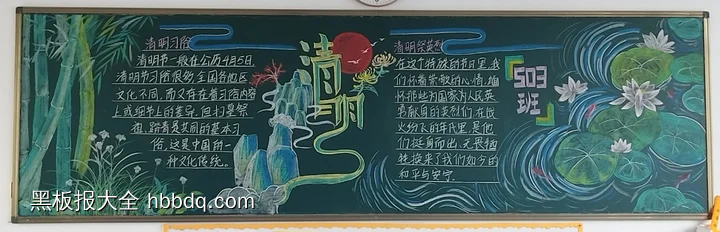 清明习俗
清明节一般在公历4月5日,
清明习俗很多,全国各地区
文化不同,而又存在着习俗内容
上或细节上的差异,但扫墓祭
祖、踏青是共同的基本习
俗,这是中国的一
种文化传统。
清明
清明祭英烈
在这个特殊的节日里,我
们怀着崇敬的心情,缅
怀那些为国家为人民英
勇献身的英烈们,在战
火纷飞的年代里,是他
们挺身而出,无畏牺
牲,换来了我们如今的
和平与安宁
503
班
黑板报大全 hbbdq.com